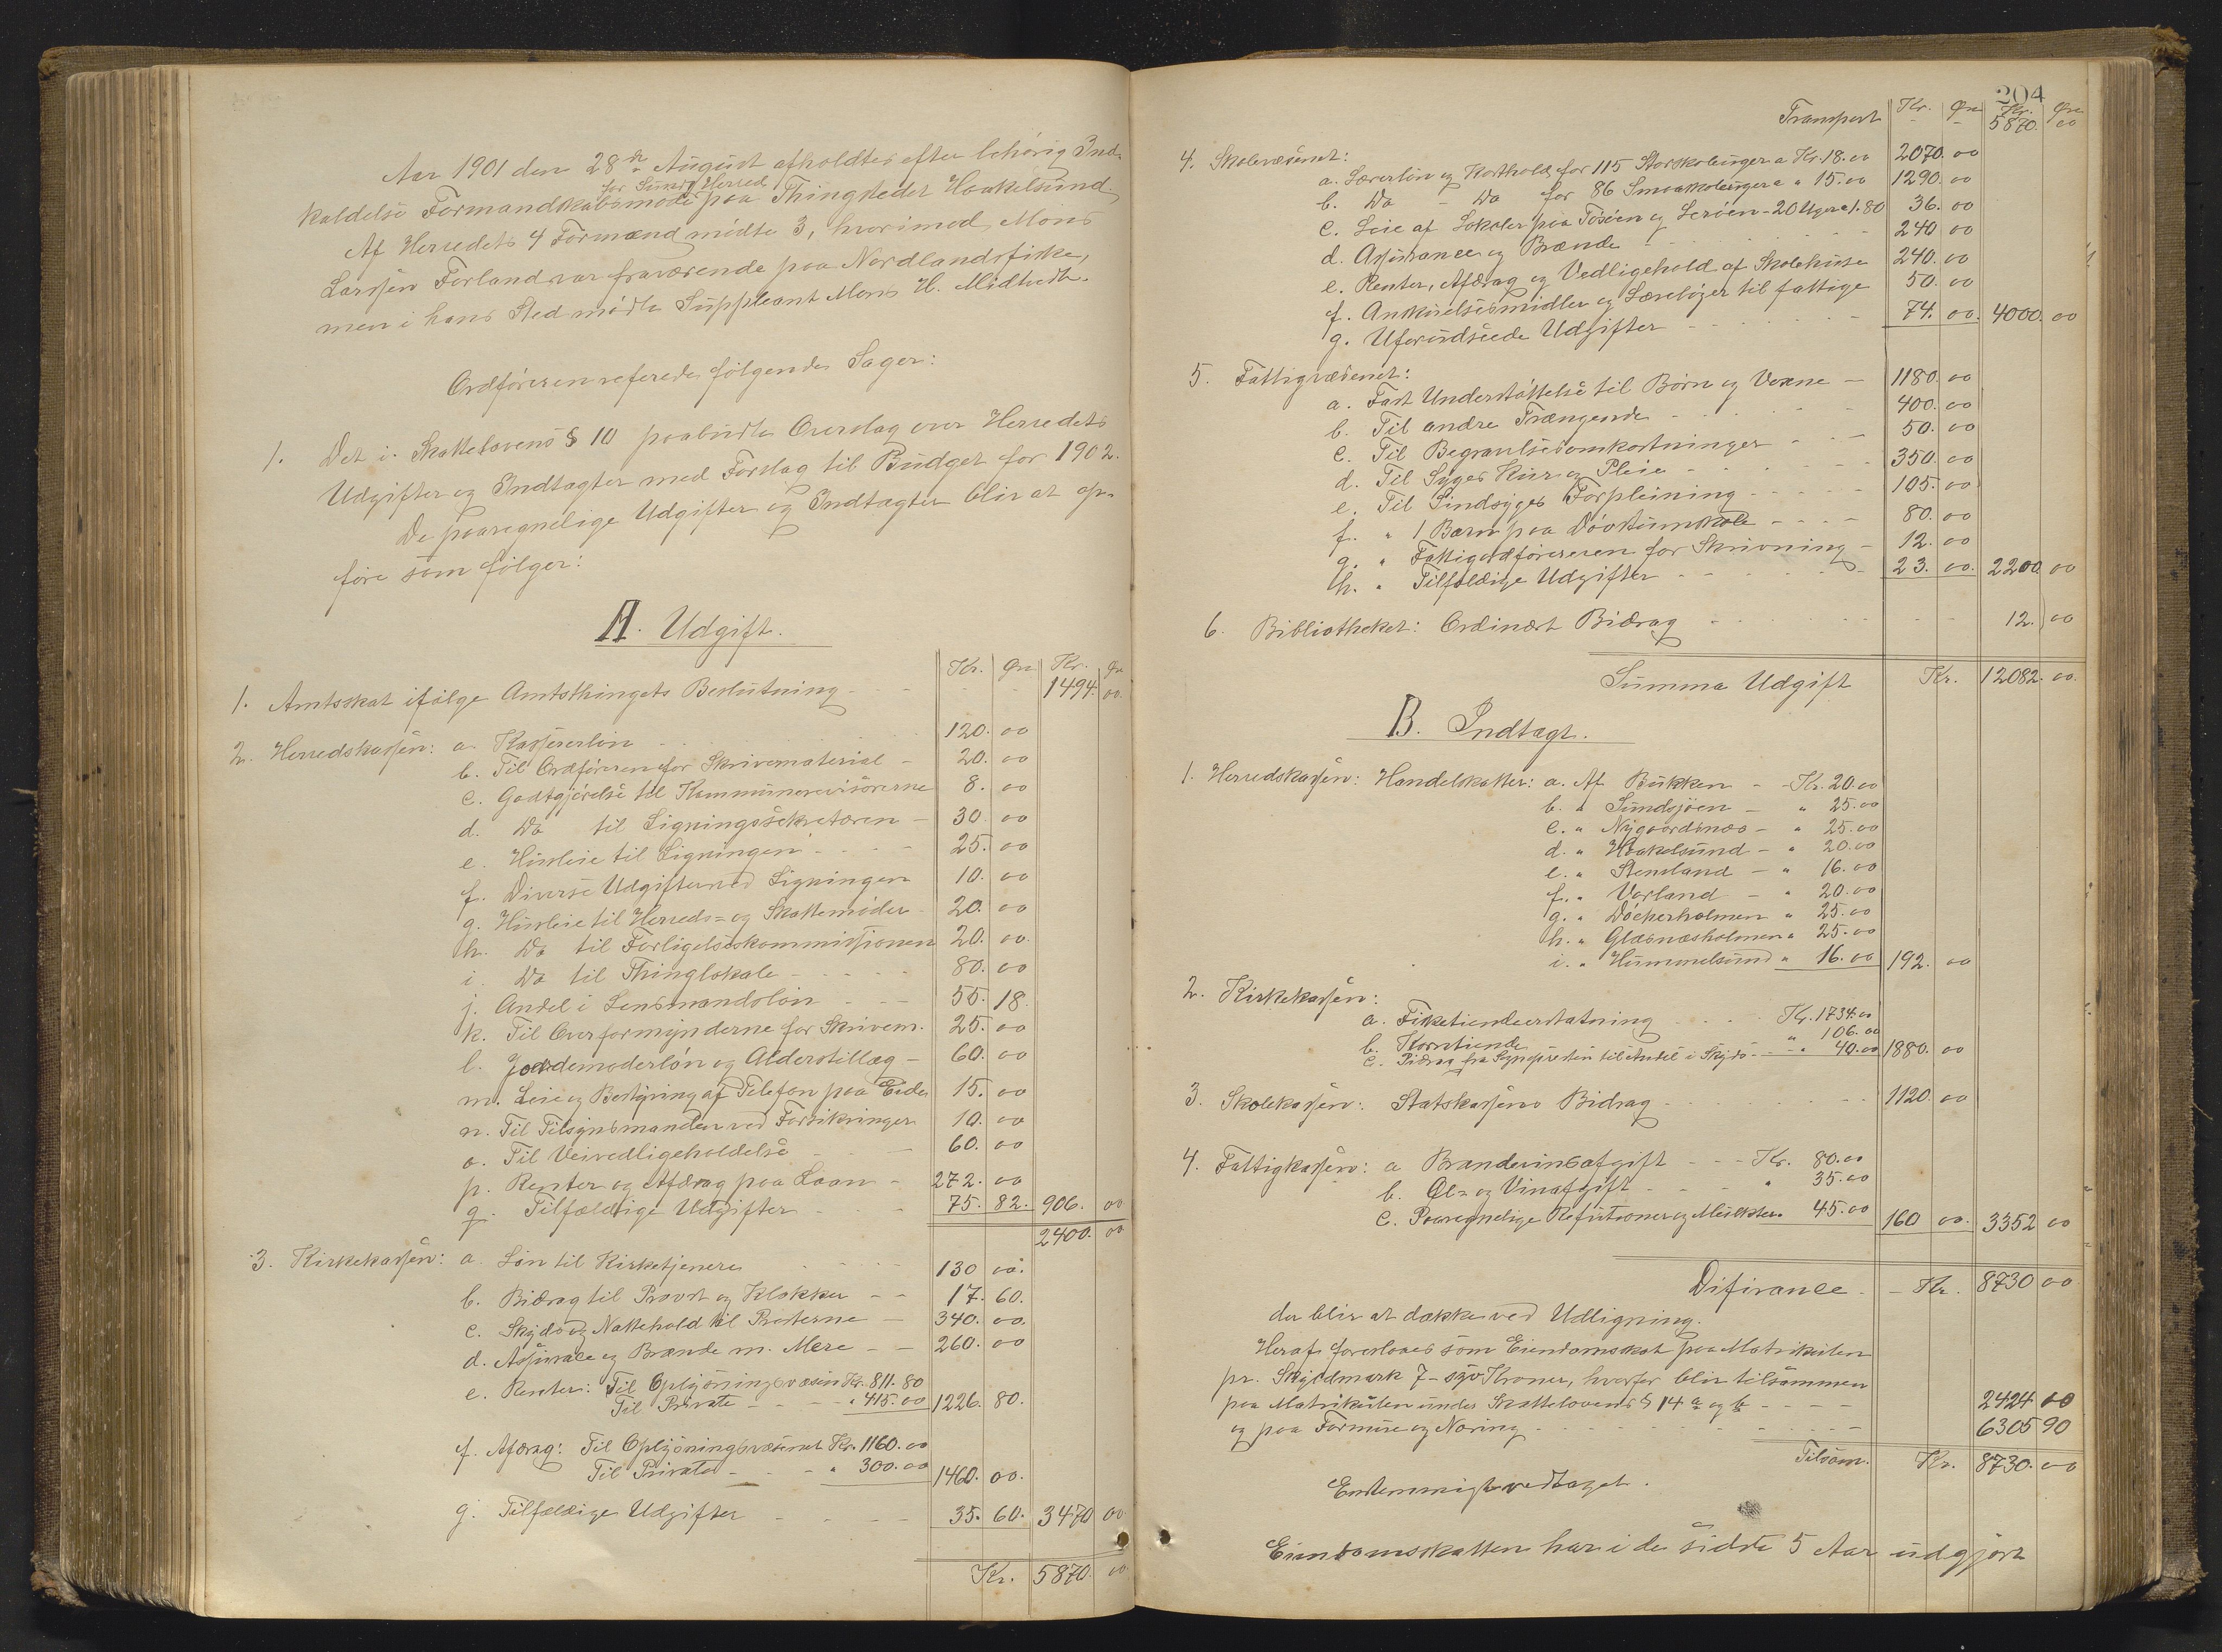 Aar 1901 den 28de August afholdtes efter behörig Ind-
kaldelse Formandskabsmöde for Sunds Herred paa Thingstedet Haakelsund.
Af Herredets 4 Formænd mödte 3, hvorimod Mons
Larssen Forland var fraværende paa Nordlandsfiske,
men i hans Sted mödte Suppleant Mons H. Midttvedt.
Ordföreren referede fölgende Sager:
1. Det i Skattelovens § 10 paabudte Overslag over Herredets
Udgifter og Indtægter med Forslag til Budget for 1902.
De paaregnelige Udgifter og Indtægter blir at op-
före som fölger:
A. Udgift.
Kr. Øre Kr. Øre
1. Amtsskat ifölge Amtsthingets Beslutning - - - 1494. 00.
2. Herredskassen: a. Kassererlön 120. 00
b. Til Ordföreren for Skrivematerial - 20. 00
c. Godtgjörelse til Kommunerevisörerne 8. 00
d. Do til Ligningssekretæren - 30 00
e. Husleie til Ligningen - - - 25. 00
f. Diverse Udgifter ved Ligningen 10. 00
g. Husleie til Herreds- og Skattemöder - 20. 00
h. Do til Forligelseskommissionen 20. 00.
i. Do til Thinglokale - - - - 80. 00
j. Andel i Lensmandslön - - - 55. 18.
k. Til Overformynderne for Skrivem. 25. 00
l. Jordemoderlön og Alderstillæg - 60. 00
m. Leie og Bestyring af Telefon paa Eide 15. 00
n. Til Tilsynsmanden ved Forsikringer 10. 00
o. Til Veivedligeholdelse - - 60. 00
p. Renter og Afdrag paa Laan - 272. 00
q. Tilfældige Udgifter - - 75. 82. 906. 00
2400. 00
3. Kirkekassen: a. Lön til Kirketjenere - - - - 130 00.
b. Bidrag til Provst og Klokker - - 17. 60.
c. Skyds og Nattehold til Presterne - 340. 00.
d. Assurance og Brænde m. Mere - - 260. 00
e. Renter: Til Oplysningsvæsen Kr. 811. 80
Til Private - - - - " 415. 00 1226. 80.
f. Afdrag: Til Oplysningsvæsenet Kr. 1160. 00
Til Private - - - " 300. 00 1460. 00.
g. Tilfældige Udgifter - - - - 35. 60. 3470 00
Kr. 5870. 00
204
Kr. Øre Kr. Øre
Transport - - 5870. 00
4. Skolevæsenet:
a. Lærerlön og Kosthold for 115 Storskoleuger a Kr. 18. 00 2070. 00
b. Do - Do for 86 Smaaskoleuger a " 15. 00 1290. 00
c. Leie af Lokaler paa Töseen og Leröen - 20 Uger a 1. 80 36. 00
d. Assurance og Brænde - - - 240 00
e. Renter, Afdrag og Vedligehold af Skolehuse 240. 00
f. Anskuelsesmidler og Læreböger til fattige 50. 00
g. Uforudseede Udgifter - - - - 74. 00. 4000. 00
5. Fattigvæsenet:
a. Fast Understöttelse til Börn og Voxne - 1180. 00
b. Til andre Trængende - - - - 400. 00
c. Til Begravelsesomkostninger - - - 50. 00
d. Til Syges Kur og Pleie - - - - 350. 00
e. Til Sindsyges Forpleining - - - - 105. 00
f. " 1 Barn paa Dövstumskole - - - - 80. 00
g. " Fattigordföreren for Skrivning - 12. 00
h. " Tilfældige Udgifter - - - - 23. 00. 2200 00
6. Bibliotheket: Ordinært Bidrag - - - 12. 00
Summa Udgift Kr. 12082. 00.
B. Indtægt.
1. Herredskassen: Handelskatter: a. Af Bukken - - Kr. 20. 00
b. " Sundsjöen - " 25. 00
c. " Nygaardsnæs - " 25. 00
d. " Haakelsund - " 20. 00
e. " Stensland - " 16. 00
f. " Vorland - " 20. 00
g. " Döckerholmen " 25. 00
h. " Glæsnæsholmen " 25. 00
i. " Hummelsund " 16. 00 192. 00
2. Kirkekassen:
a. Fisketiendeerstatning - - - Kr. 1734. 00
b. Korntiende " 106. 00
c. Bidrag fra Sognepresten til Andel i Skyds - - " 40. 00 1880. 00
3. Skolekassen: Statskassens Bidrag - - - - 1120. 00
4. Fattigkassen: a Brænderinsafgift - - - Kr. 80. 00
b. Øl- og Vinafgift - - - " 35. 00
c. Paaregnelige Refusioner og Mulkter. 45. 00 160 00. 3352 00
Difirance - - Kr. 8730 00
der blir at dække ved Udligning.
Heraf foreslaaes som Eiendomsskat paa Matrikulen
pr. Skyldmark 7 - syv Kroner, hvorfor blir tilsammen
paa Matrikulen under Skattelovens § 14 a og b - - - - 2424 10
og paa Formue og Næring - - - - 6305 90
Tilsam. Kr. 8730. 00
Enstemmigt vedtaget.
Eiendomsskatten har i de sidste 5 Aar udgjort